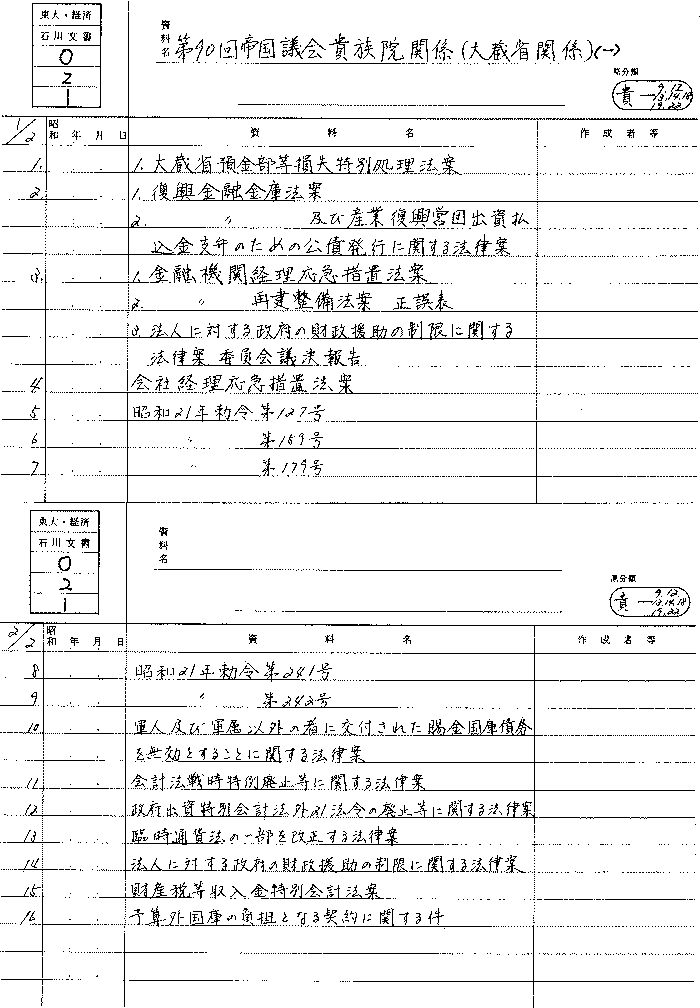 東大・経済
石川文書
0
2
1
資料名 第90回帝国議会貴族院関係(大蔵省関係)(一)
原分類
貴一 9.12
13.14.18
19.22
1/2 昭和 年 月 日 資料名 作成者等
1. 1. 大蔵省預金部等損失特別処理法案
2. 1. 復興金融金庫法案
2. 〃 及び産業復興営団出資払
込金支弁のための公債発行に関する法律案
3. 1. 金融機関経理応急措置法案
2. 〃 再建整備法案 正誤表
3. 法人に対する政府の財政援助の制限に関する
法律案 委員会議決報告
4 会社経理応急措置法案
5 昭和21年勅令第127号
6 〃 第169号
7 〃 第179号
東大・経済
石川文書
0
2
1
資料名
原分類
貴一 9.12
13.14.18
19.22
2/2 昭和 年 月 日 資料名 作成者等
8 昭和21年勅令第241号
9 〃 第242号
10 軍人及び軍属以外の者に交付された賜金国庫債券
を無効とすることに関する法律案
11 会計法戦時特例廃止等に関する法律案
12 政府出資特別会計法外21法令の廃止等に関する法律案
13 臨時通貨法の一部を改正する法律案
14 法人に対する政府の財政援助の制限に関する法律案
15 財産税等収入金特別会計法案
16 予算外国庫の負担となる契約に関する件